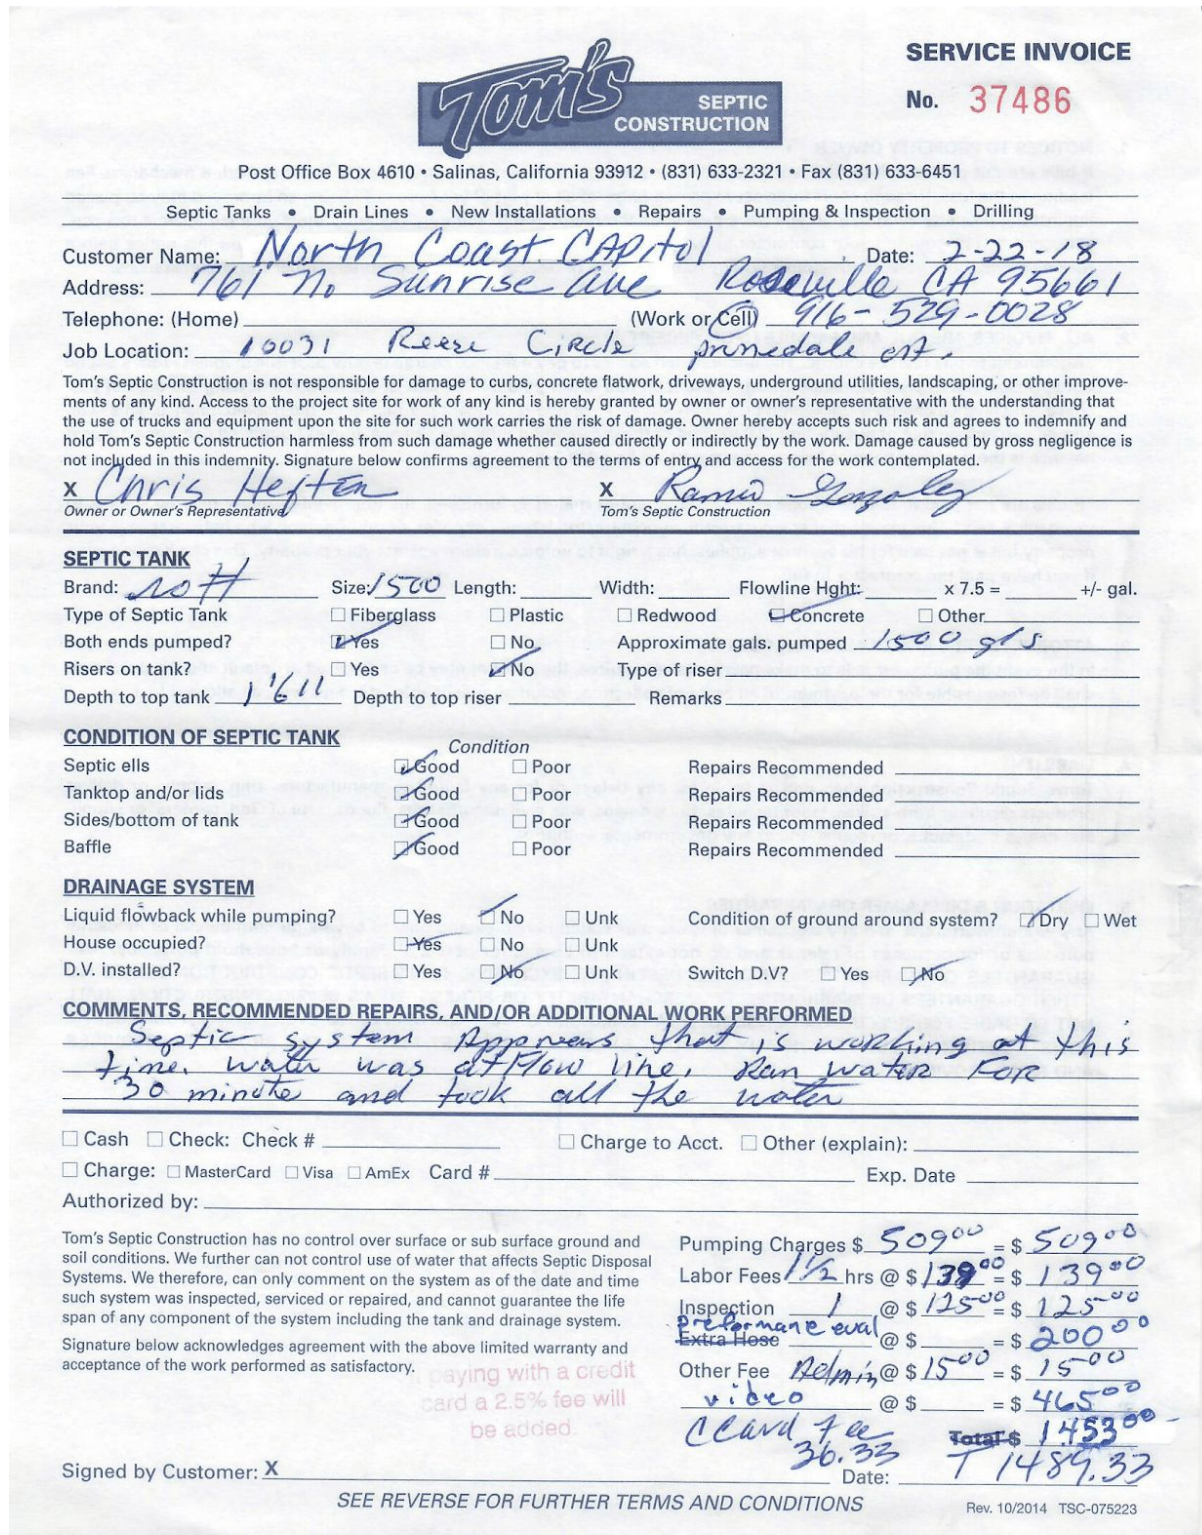 SERVICE INVOICE
No. 37486
Tom's SEPTIC CONSTRUCTION
Post Office Box 4610 • Salinas, California 93912 • (831) 633-2321 • Fax (831) 633-6451
Septic Tanks • Drain Lines • New Installations • Repairs • Pumping & Inspection • Drilling
Customer Name: North Coast CAPitol Date: 2-22-18
Address: 761 No Sunrise ave Roseville CA 95661
Telephone: (Home) (Work or Cell) 916-529-0028
Job Location: 10031 Reese Circle prunedale
Tom's Septic Construction is not responsible for damage to curbs, concrete flatwork, driveways, underground utilities, landscaping, or other improve-
ments of any kind. Access to the project site for work of any kind is hereby granted by owner or owner's representative with the understanding that
the use of trucks and equipment upon the site for such work carries the risk of damage. Owner hereby accepts such risk and agrees to indemnify and
hold Tom's Septic Construction harmless from such damage whether caused directly or indirectly by the work. Damage caused by gross negligence is
not included in this indemnity. Signature below confirms agreement to the terms of entry and access for the work contemplated.
X Chris Heften X
Owner or Owner's Representative Tom's Septic Construction
SEPTIC TANK
Brand: Size: 1500 Length: Width: Flowline Hght: x 7.5 = +/- gal.
Type of Septic Tank Fiberglass Plastic Redwood Concrete Other
Both ends pumped? Yes No Approximate gals. pumped 1500 gls
Risers on tank? Yes No Type of riser
Depth to top tank 1'6" Depth to top riser Remarks
CONDITION OF SEPTIC TANK Condition
Septic ells Good Poor Repairs Recommended
Tanktop and/or lids Good Poor Repairs Recommended
Sides/bottom of tank Good Poor Repairs Recommended
Baffle Good Poor Repairs Recommended
DRAINAGE SYSTEM
Liquid flowback while pumping? Yes No Unk Condition of ground around system? Dry Wet
House occupied? Yes No Unk
D.V. installed? Yes No Unk Switch D.V? Yes No
COMMENTS, RECOMMENDED REPAIRS, AND/OR ADDITIONAL WORK PERFORMED
Septic system Appears that is working at this
time. water was at Flow line. Ran water For
30 minute and took all the water
Cash Check: Check # Charge to Acct. Other (explain):
Charge: MasterCard Visa AmEx Card # Exp. Date
Authorized by:
Tom's Septic Construction has no control over surface or sub surface ground and
soil conditions. We further can not control use of water that affects Septic Disposal
Systems. We therefore, can only comment on the system as of the date and time
such system was inspected, serviced or repaired, and cannot guarantee the life
span of any component of the system including the tank and drainage system.
Signature below acknowledges agreement with the above limited warranty and
acceptance of the work performed as satisfactory.
paying with a credit
card a 2.5% fee will
be added.
Pumping Charges $ 509.00 = $ 509.00
Labor Fees 1 1/2 hrs @ $ 139.00 = $ 139.00
Inspection 1 @ $ 125.00 = $ 125.00
preformane eval
Extra Hose @ $ = $ 200.00
Other Fee Admin @ $ 15.00 = $ 15.00
video @ $ = $ 465.00
CCard Fee Total $ 1453.00
36.33 T 1489.33
Signed by Customer: X Date:
SEE REVERSE FOR FURTHER TERMS AND CONDITIONS
Rev. 10/2014 TSC-075223